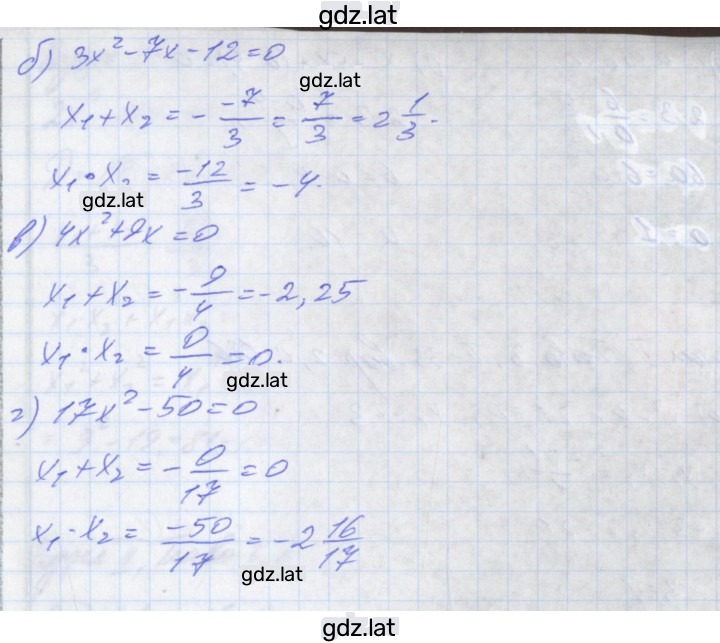 gdz.lat
б) 3x² - 7x - 12 = 0
gdz.lat
x₁ + x₂ = - -7/3 = 7/3 = 2 1/3.
x₁ · x₂ = -12/3 = -4.
gdz.lat
в) 4x² + 9x = 0
x₁ + x₂ = - 9/4 = -2,25
x₁ · x₂ = 0/4 = 0.
gdz.lat
г) 17x² - 50 = 0
x₁ + x₂ = - 0/17 = 0
x₁ · x₂ = -50/17 = -2 16/17
gdz.lat
gdz.lat